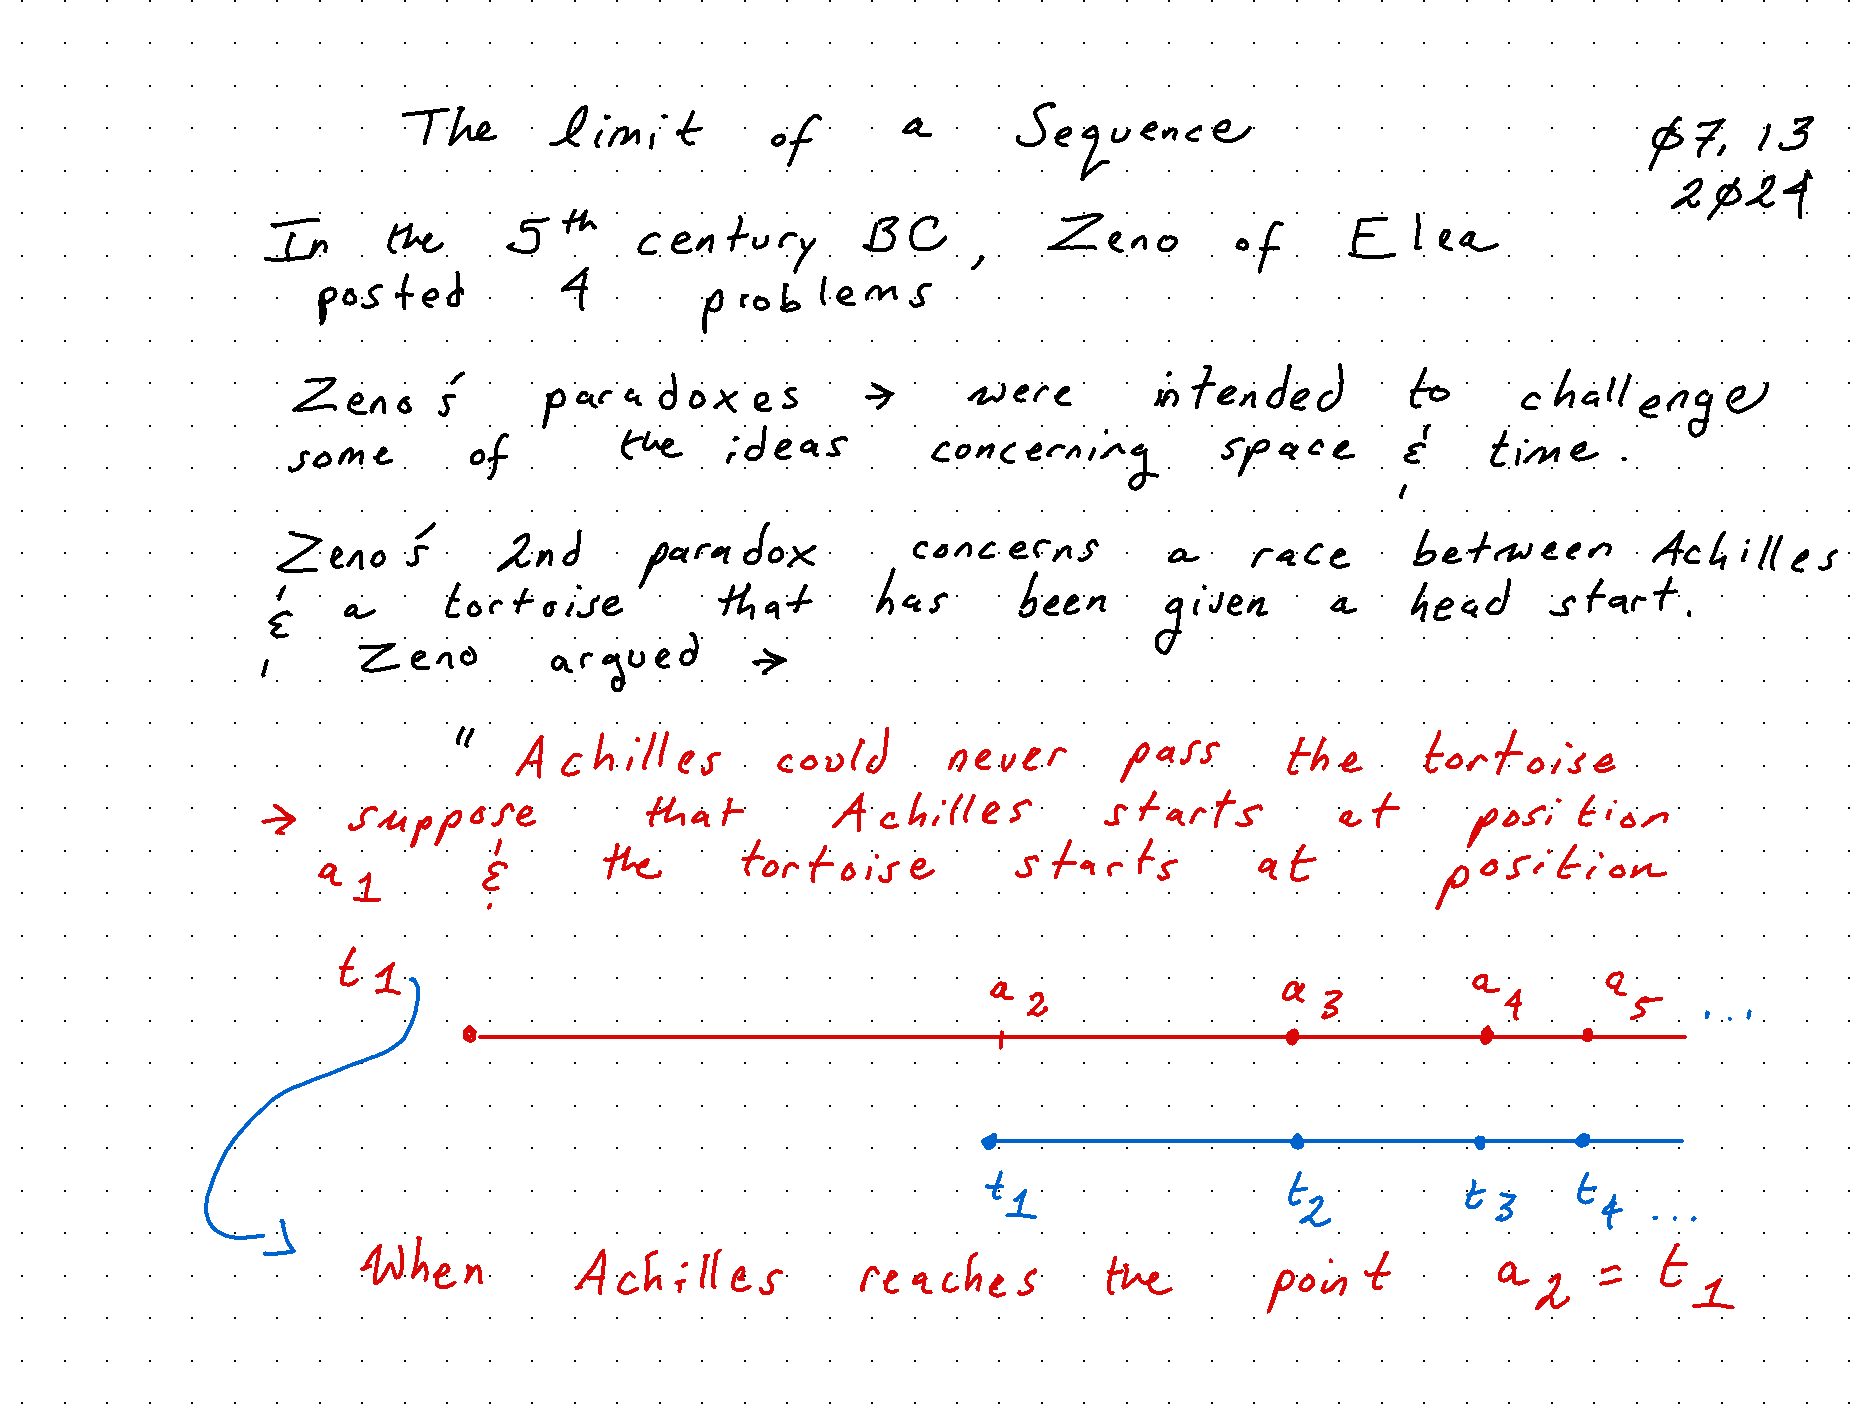 The limit of a Sequence
07, 13
2024
In the 5th century BC, Zeno of Elea
posted 4 problems
Zeno's paradoxes → were intended to challenge
some of the ideas concerning space & time.
Zeno's 2nd paradox concerns a race between Achilles
& a tortoise that has been given a head start.
Zeno argued →
" Achilles could never pass the tortoise
→ suppose that Achilles starts at position
a1 & the tortoise starts at position
t1
a2 a3 a4 a5 ...
t1 t2 t3 t4 ...
When Achilles reaches the point a2 = t1